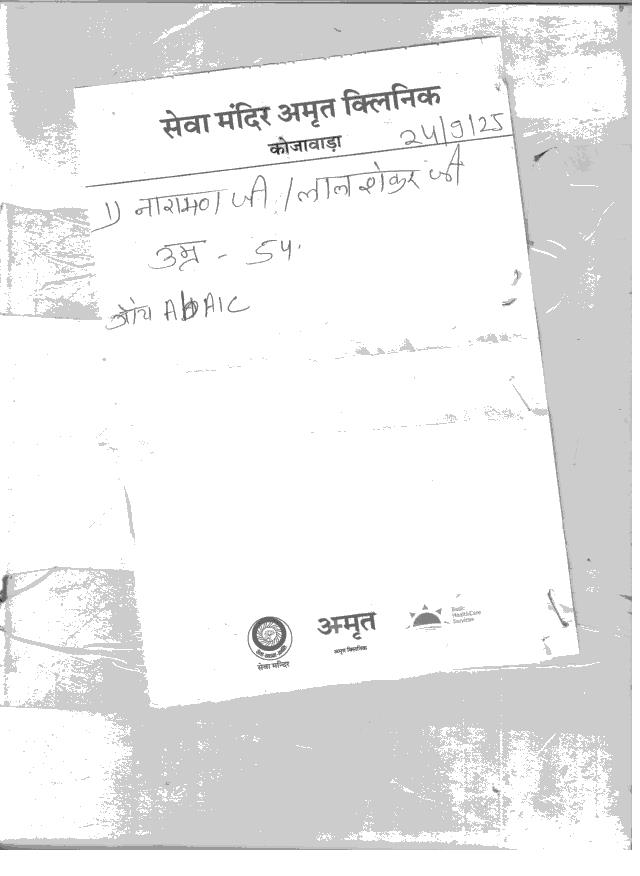 सेवा मंदिर अमृत क्लिनिक
कोजावाड़ा
24/9/25
1) नारायण जी / लाल शंकर जी
उम्र - 54.
जाँच HbA1C
सेवा मन्दिर
अमृत
अमृत क्लिनिक
Basic
HealthCare
Services